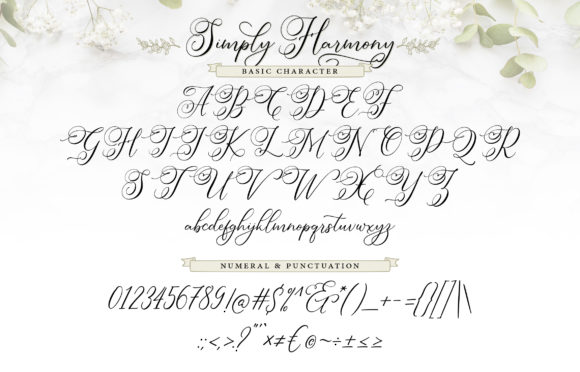 Simply Harmony
BASIC CHARACTER
A B C D E F
G H I J K L M N O P Q R
S T U V W X Y Z
abcdefghijklmnopqrstuvwxyz
NUMERAL & PUNCTUATION
0123456789!@#$%^&*()_+-={}[]|\
:;<,>.?"'`×≠€©~÷±≤≥